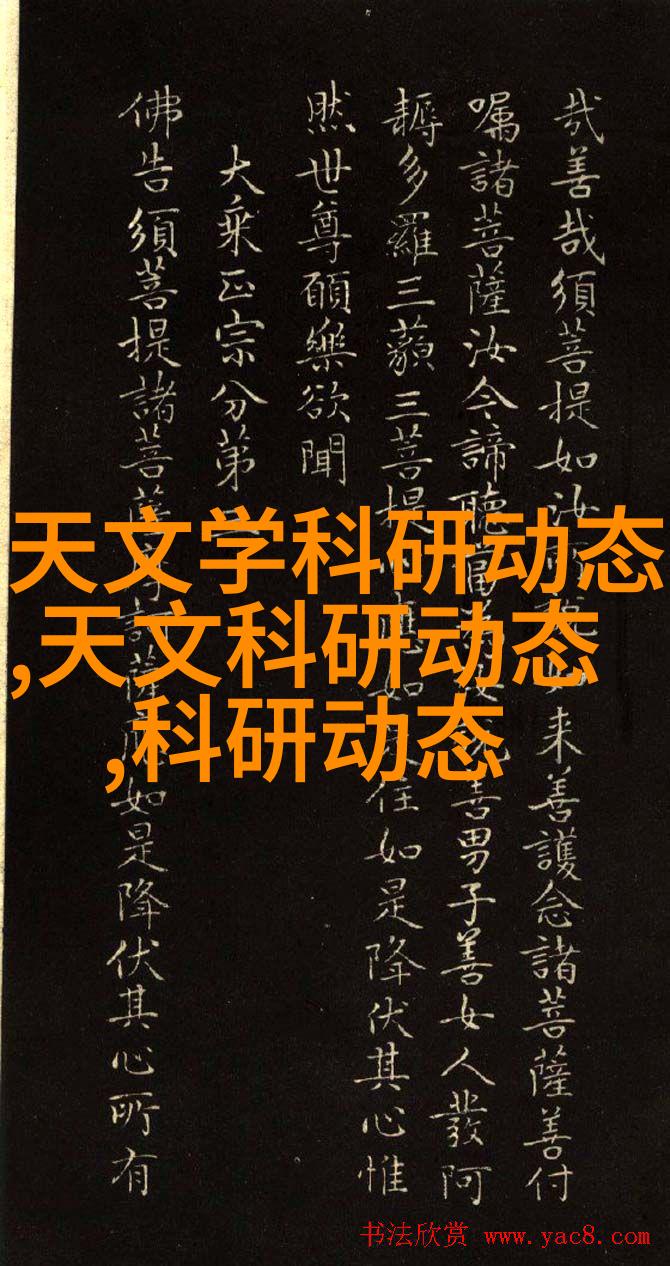 哉善哉須菩提如汝來善護念諸菩薩善付
囑諸菩薩汝今諦聽善男子善女人發阿
耨多羅三藐三菩提應如住如是降伏其心惟
然世尊願樂欲聞
大乘正宗分第
佛告須菩提諸菩薩訶薩應如是降伏其心所有
天文学科研动态
,天文科研动态
,科研动态
书法欣赏 www.yac8.com